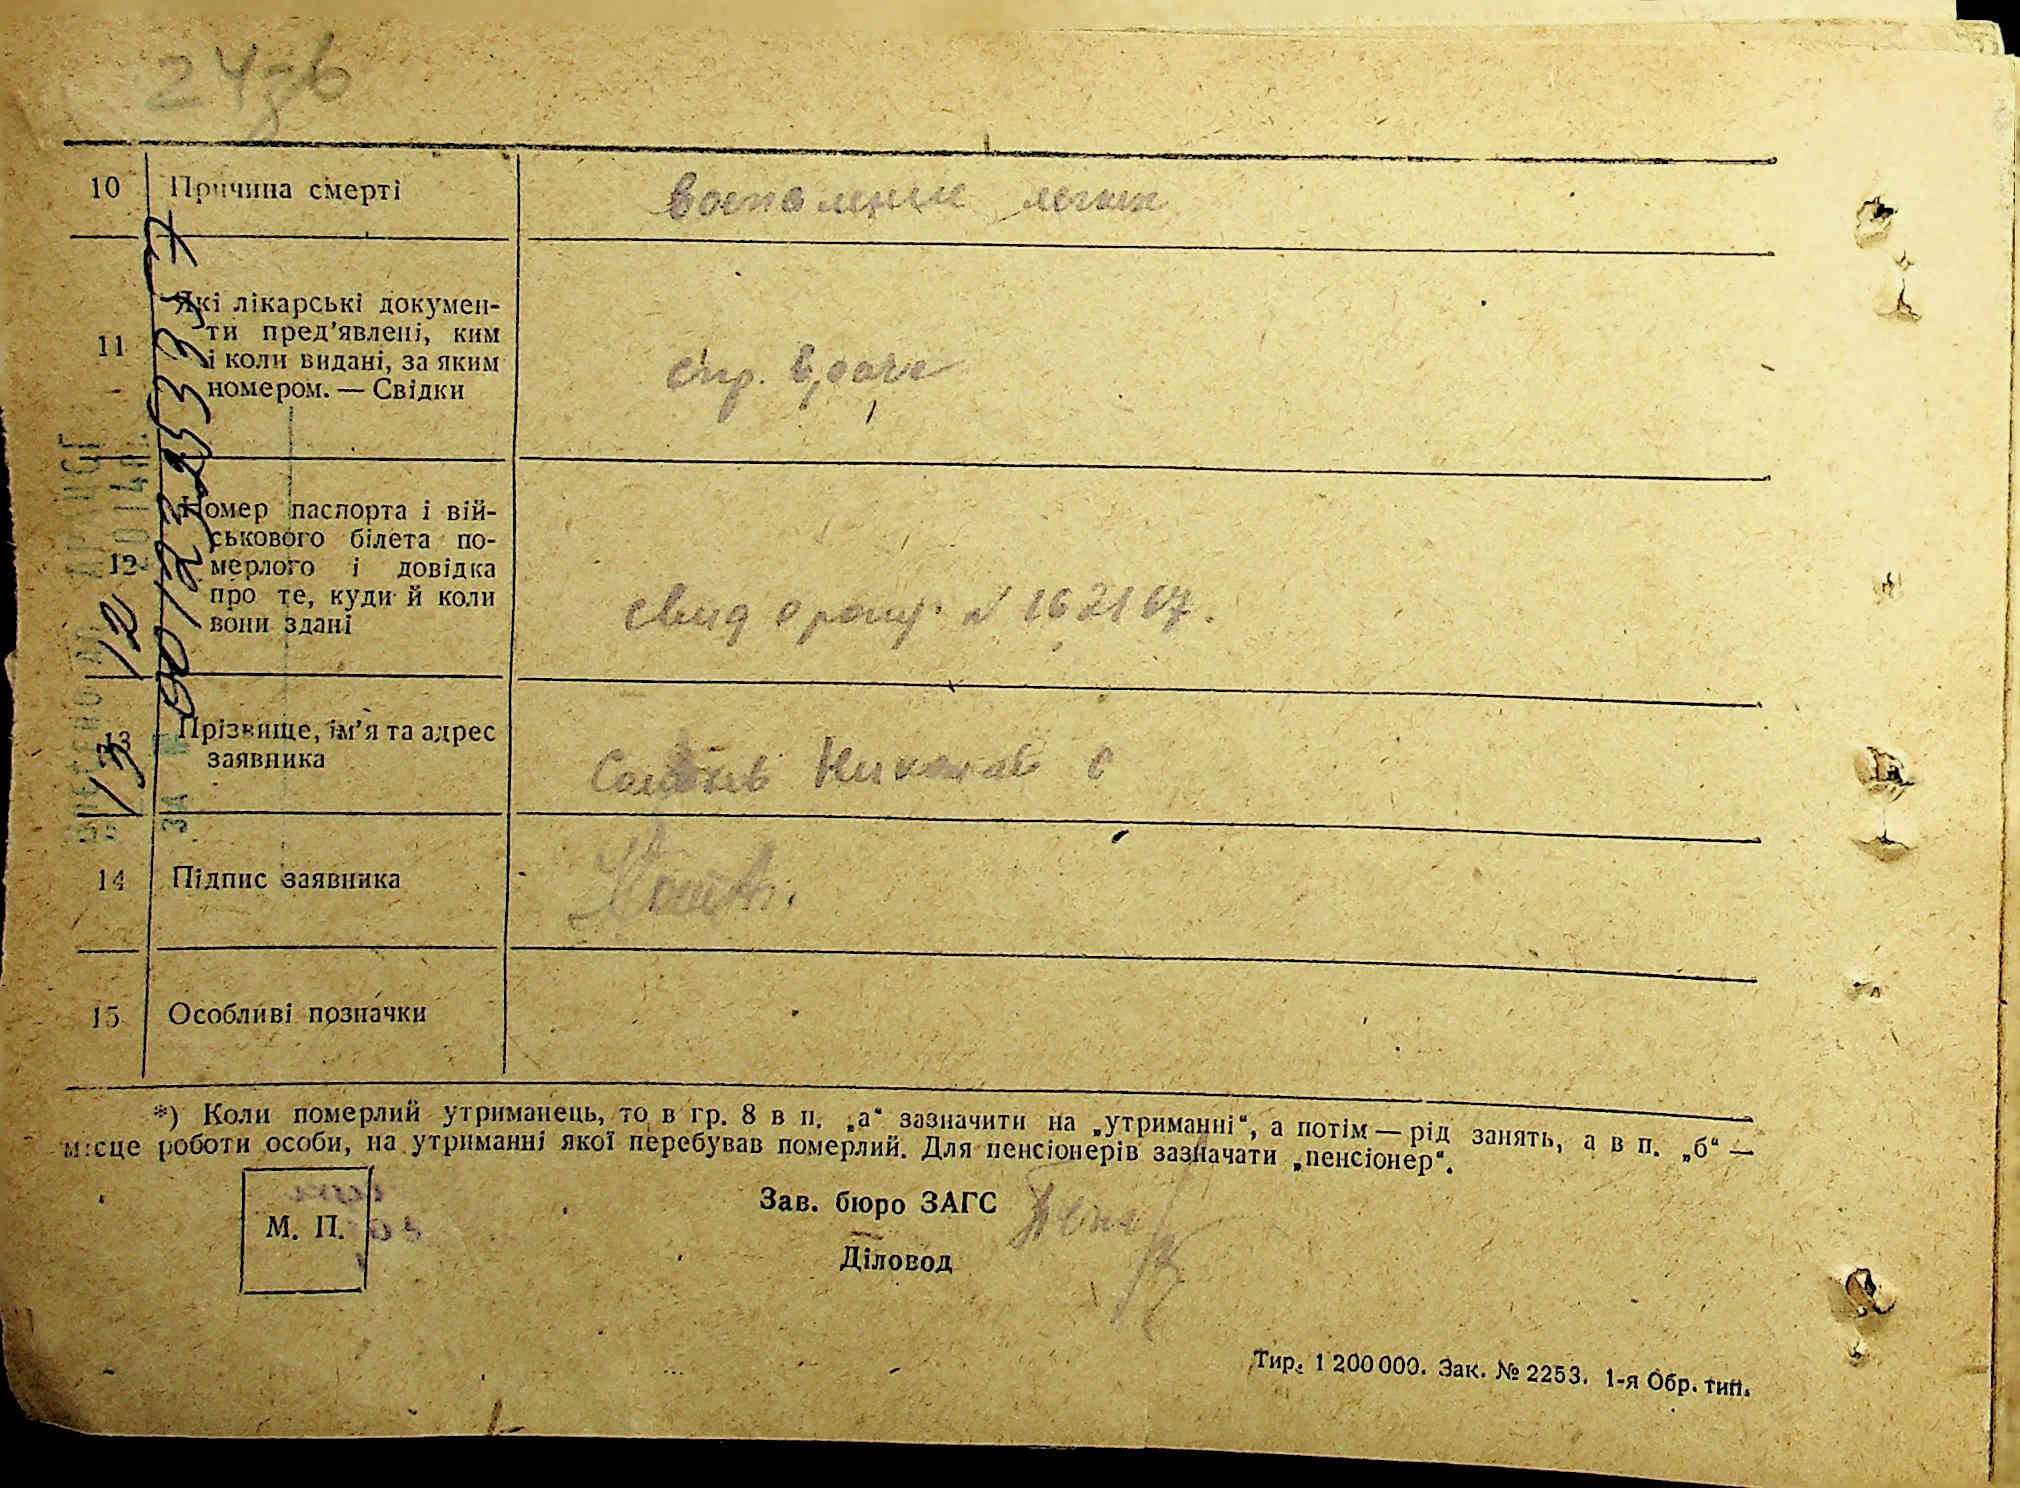 10 Причина смерті воспаление легких
11 Які лікарські докумен-
ти пред’явлені, ким
і коли видані, за яким
номером. — Свідки
спр. врача
12 Номер паспорта і вій-
ськового білета по-
мерлого і довідка
про те, куди й коли
вони здані
свид о рожд. № 162167.
13 Прізвище, ім’я та адрес
заявника
Николай С
14 Підпис заявника
15 Особливі позначки
*) Коли померлий утриманець, то в гр. 8 в п. „а“ зазначити на „утриманні“, а потім — рід занять, а в п. „б“ —
місце роботи особи, на утриманні якої перебував померлий. Для пенсіонерів зазначати „пенсіонер“.
М. П.
Зав. бюро ЗАГС
Діловод
Тир. 1 200 000. Зак. № 2253. 1-я Обр. тип.